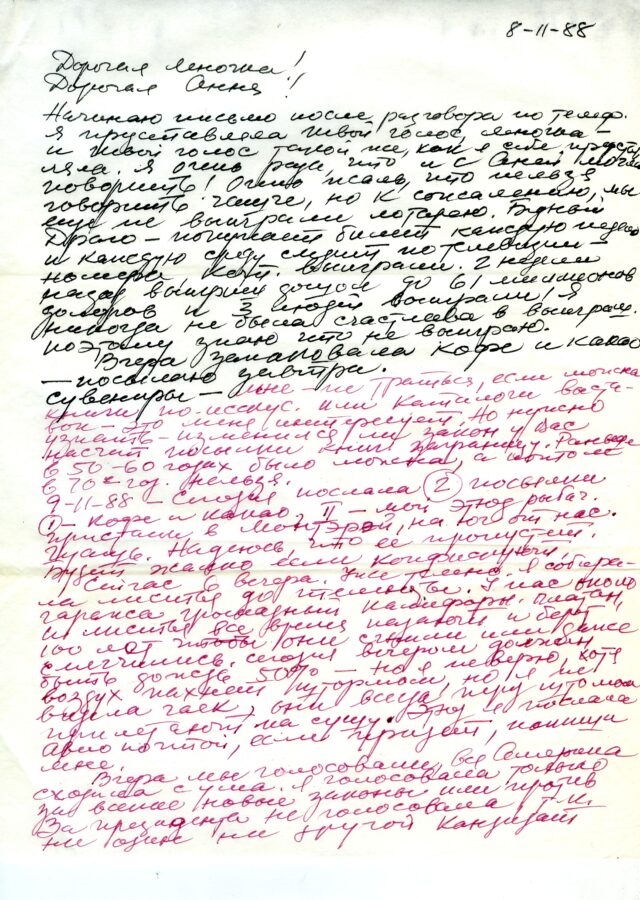 8-11-88
Дорогая Леночка!
Дорогая Анна!
Начинаю письмо после разговора по телеф.
Я представляла твой голос, Леночка –
и твой голос такой же, как я себе предста
ляла. Я очень рада, что и с Аней могла
говорить! Очень жаль, что нельзя
говорить чаще, но к сожалению, мы
еще не выиграли лотарею. Бедный
Драго – покупает билет каждую неделю
и каждую среду следит по телевизии –
номера кот. выиграли. 2 недели
назад выигрыш дошел до 61 миллионов
доларов и 3 людей выиграли! Я
никогда не была счастлива в выиграх.
поэтому знаю что не выиграю.
Вчера запаковала кофе и какао
– посылаю завтра.
сувениры – мне – не траться, если можно
книги по-искус. или каталоги выста-
вок – это меня интересует. Но нужно
узнать – изменился ли закон у Вас
насчет посылки книг заграницу. Раньше
в 50-60 годах было можно, а потом
в 70х год. нельзя.
9-11-88 – Сегодня послала 2 посылки
I – кофе и какао, II – мой этюд рыбач.
пристани в Монтэрэй, на юг от нас.
Гуашь. Надеюсь, что ее пропустят.
Будет жалко если конфискуют.
Сейчас 6 вечера. Уже темно. Я собира-
ла листья до темноты. У нас около
гаража громадный калифорн. платан,
и листья все время падают и берет
100 лет чтобы они сгнили или даже
смягчились. Сегодня вечером должен
быть дождь 50% – но я не верю, хотя
воздух пахнет штормом, но я не
видела чаек, они всегда перед штормом
прилетают на сушу. Этюд я послала
авио почтой, если придет, напиши
мне.
Вчера мы голосовали, вся Америка
сходила с ума. Я голосовала только
за всякие новые законы или против
За президента не голосовала, т.к.
ни один ни другой кандидат